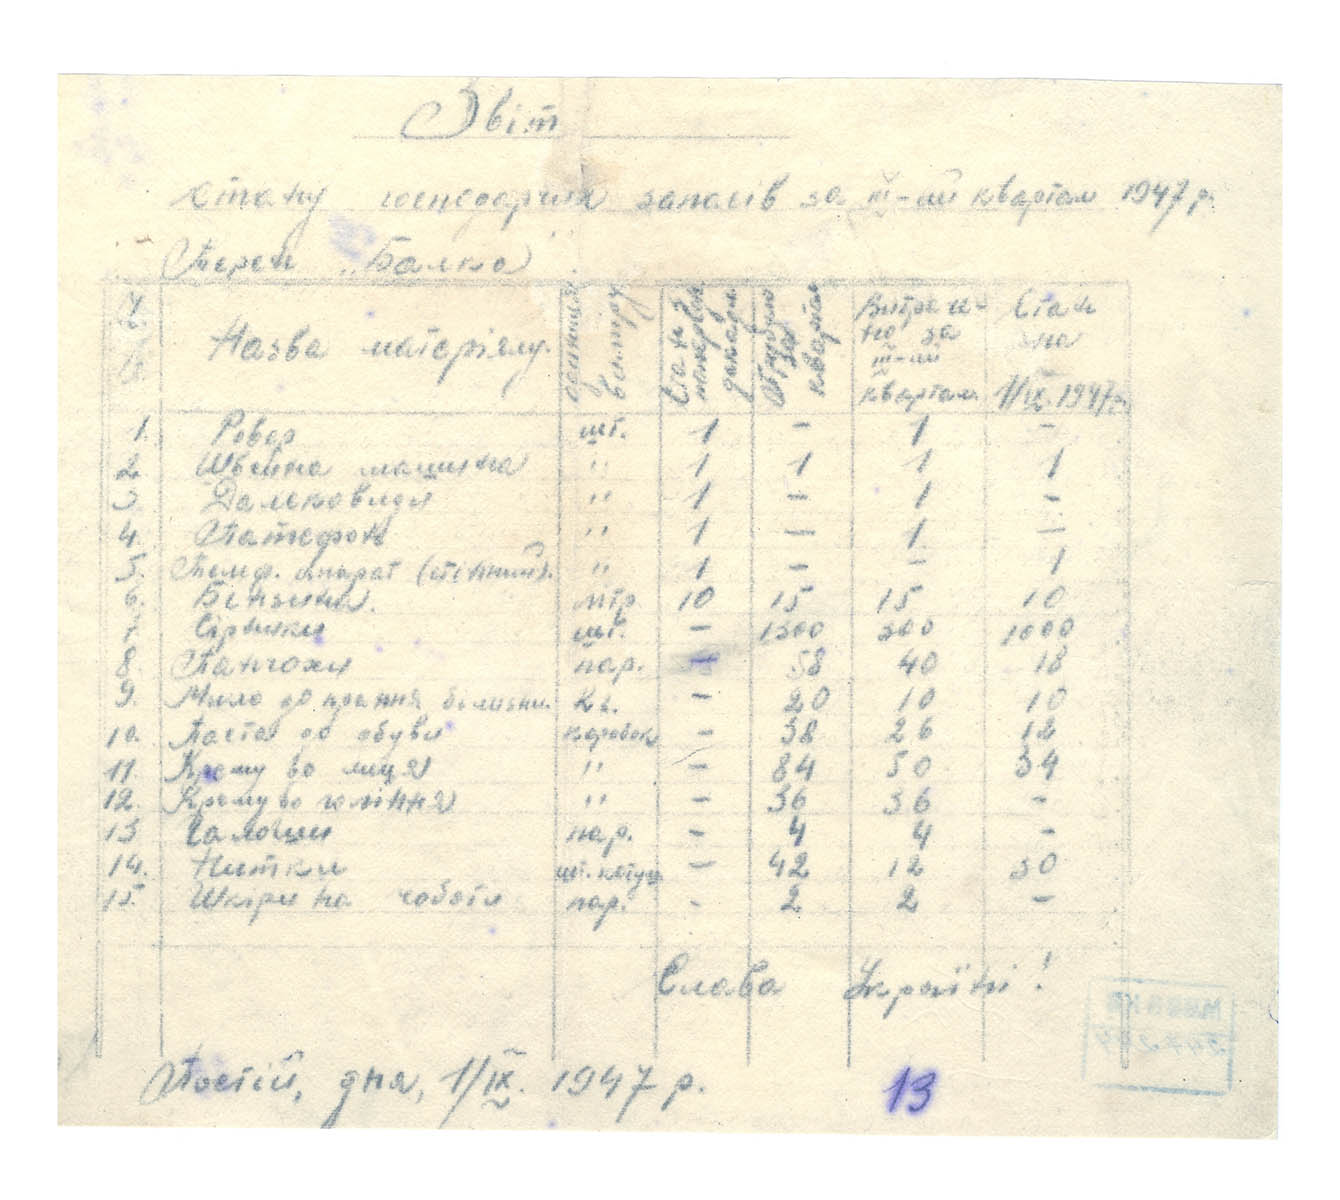 Звіт
стану господарчих запасів за III-ий квартал 1947 р.
Терен "Балка"
Ч. Назва матеріялу. одиниця Стан за квартал Витрачено за III-ий квартал Стан на 1/IX. 1947 р.
1. Ровер шт. 1 - 1 -
2. Швейна машина " 1 1 1 1
3. Далековиди " 1 - 1 -
4. Патефон " 1 - 1 -
5. Телеф. апарат (стінний). " 1 - - 1
6. Бензина. літр. 10 15 15 10
7. Сірники шт. - 1300 300 1000
8. Панчохи пар. - 58 40 18
9. Мило до прання білизни. кг. - 20 10 10
10. Паста до обуви коробок - 38 26 12
11. Крему до лиця " - 84 50 34
12. Крему до гоління " - 36 36 -
13 Галоши пар. - 4 4 -
14. Нитки шт. котуш. - 42 12 30
15. Шкіри на чоботи пар. - 2 2 -
Слава Україні!
Постій, дня, 1/IX. 1947 р.
13